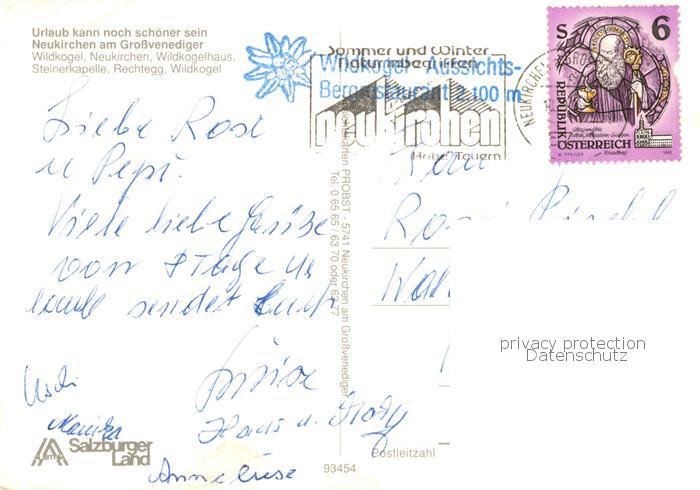 Urlaub kann noch schöner sein
Neukirchen am Großvenediger
Wildkogel, Neukirchen, Wildkogelhaus,
Steinerkapelle, Rechtegg, Wildkogel
Sommer und Winter
Natur inbegriffen
Wildkogel-Aussichts-
Bergrestaurant 2.100 m
neukirchen
Hohe Tauern
S 6
REPUBLIK
ÖSTERREICH
Liebe Rosi
u Pepi.
Viele liebe Grüße
vom 8 Tage Ur
laub sendet Euch
Luise
Uschi
Monika
Hans u.
Anneliese
Frau
postkarten PROBST - 5741 Neukirchen am Großvenediger
Tel. 0 65 65 / 63 70 oder
privacy protection
Datenschutz
Salzburger
Land
93454
Postleitzahl